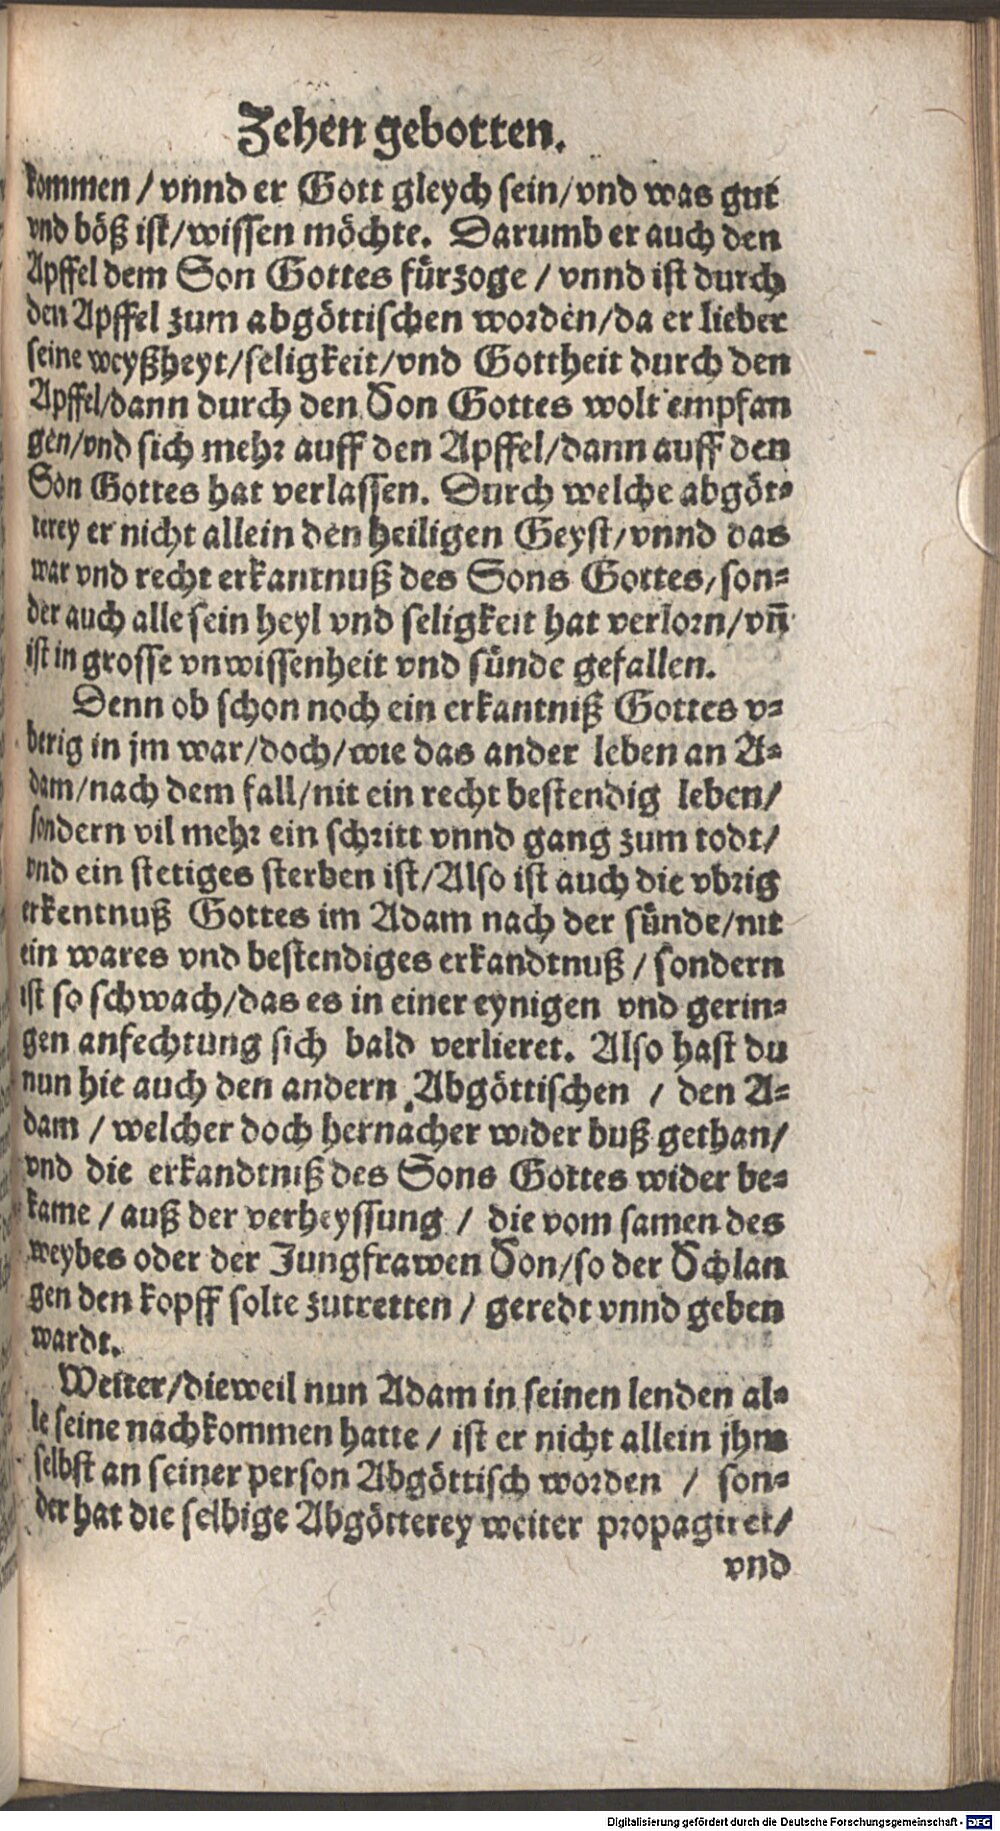 Zehen gebotten.
kommen / vnnd er Gott gleych sein/vnd was gut
vnd böß ist/wissen möchte. Darumb er auch den
Apffel dem Son Gottes fürzoge / vnnd ist durch
den Apffel zum abgöttischen worden/da er lieber
seine weyßheyt/seligkeit/vnd Gottheit durch den
Apffel/dann durch den Son Gottes wolt empfan
gen/vnd sich mehr auff den Apffel/dann auff den
Son Gottes hat verlassen. Durch welche abgöt-
terey er nicht allein den heiligen Geyst/vnnd das
war vnd recht erkantnuß des Sons Gottes/son-
der auch alle sein heyl vnd seligkeit hat verlorn/vn̄
ist in grosse vnwissenheit vnd sünde gefallen.
Denn ob schon noch ein erkantniß Gottes v-
berig in jm war/doch/wie das ander leben an A-
dam/nach dem fall/nit ein recht bestendig leben/
sondern vil mehr ein schritt vnnd gang zum todt/
vnd ein stetiges sterben ist/Also ist auch die vbrig
erkentnuß Gottes im Adam nach der sünde/nit
ein wares vnd bestendiges erkandtnuß / sondern
ist so schwach/das es in einer eynigen vnd gerin-
gen anfechtung sich bald verlieret. Also hast du
nun hie auch den andern Abgöttischen / den A-
dam / welcher doch hernacher wider buß gethan/
vnd die erkandtniß des Sons Gottes wider be-
kame / auß der verheyssung / die vom samen des
weybes oder der Jungfrawen Son/so der Schlan
gen den kopff solte zutretten / geredt vnnd geben
wardt.
Weiter/dieweil nun Adam in seinen lenden al-
le seine nachkommen hatte / ist er nicht allein jhm
selbst an seiner person Abgöttisch worden / son-
der hat die selbige Abgötterey weiter propagiret/
vnd
Digitalisierung gefördert durch die Deutsche Forschungsgemeinschaft - DFG